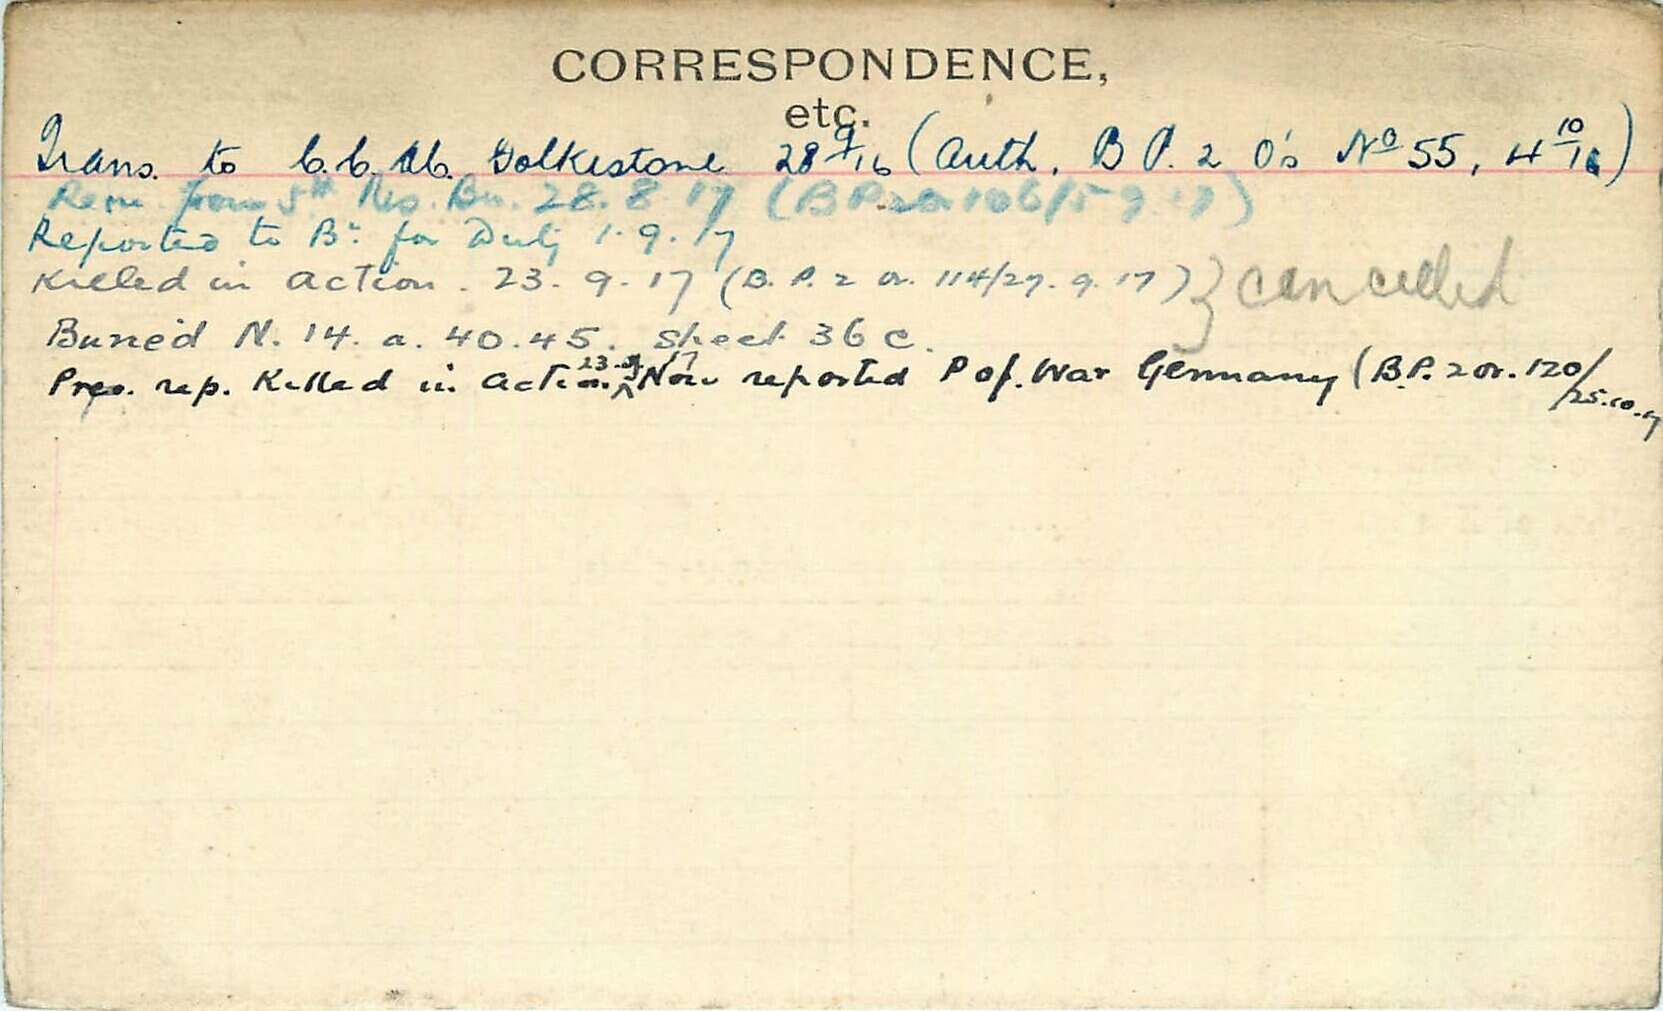 CORRESPONDENCE,
etc.
Trans. to C.C.Ac. Folkestone 28 9/16 (Auth. B P. 2 O's No 55, 4 10/16)
Rein. from 5th Res. Bn. 28. 8. 17 (B P. 2 or 106/5 9 17)
Reported to Bn. for Duty 1. 9. 17
Killed in Action. 23. 9. 17 (B. P. 2 or. 114/27. 9. 17) } cancelled
Buried N. 14. a. 40. 45. Sheet 36 c.
Prev. rep. Killed in action 23.9.17 Now reported P of. War Germany (B.P. 2 or. 120/25.10.17